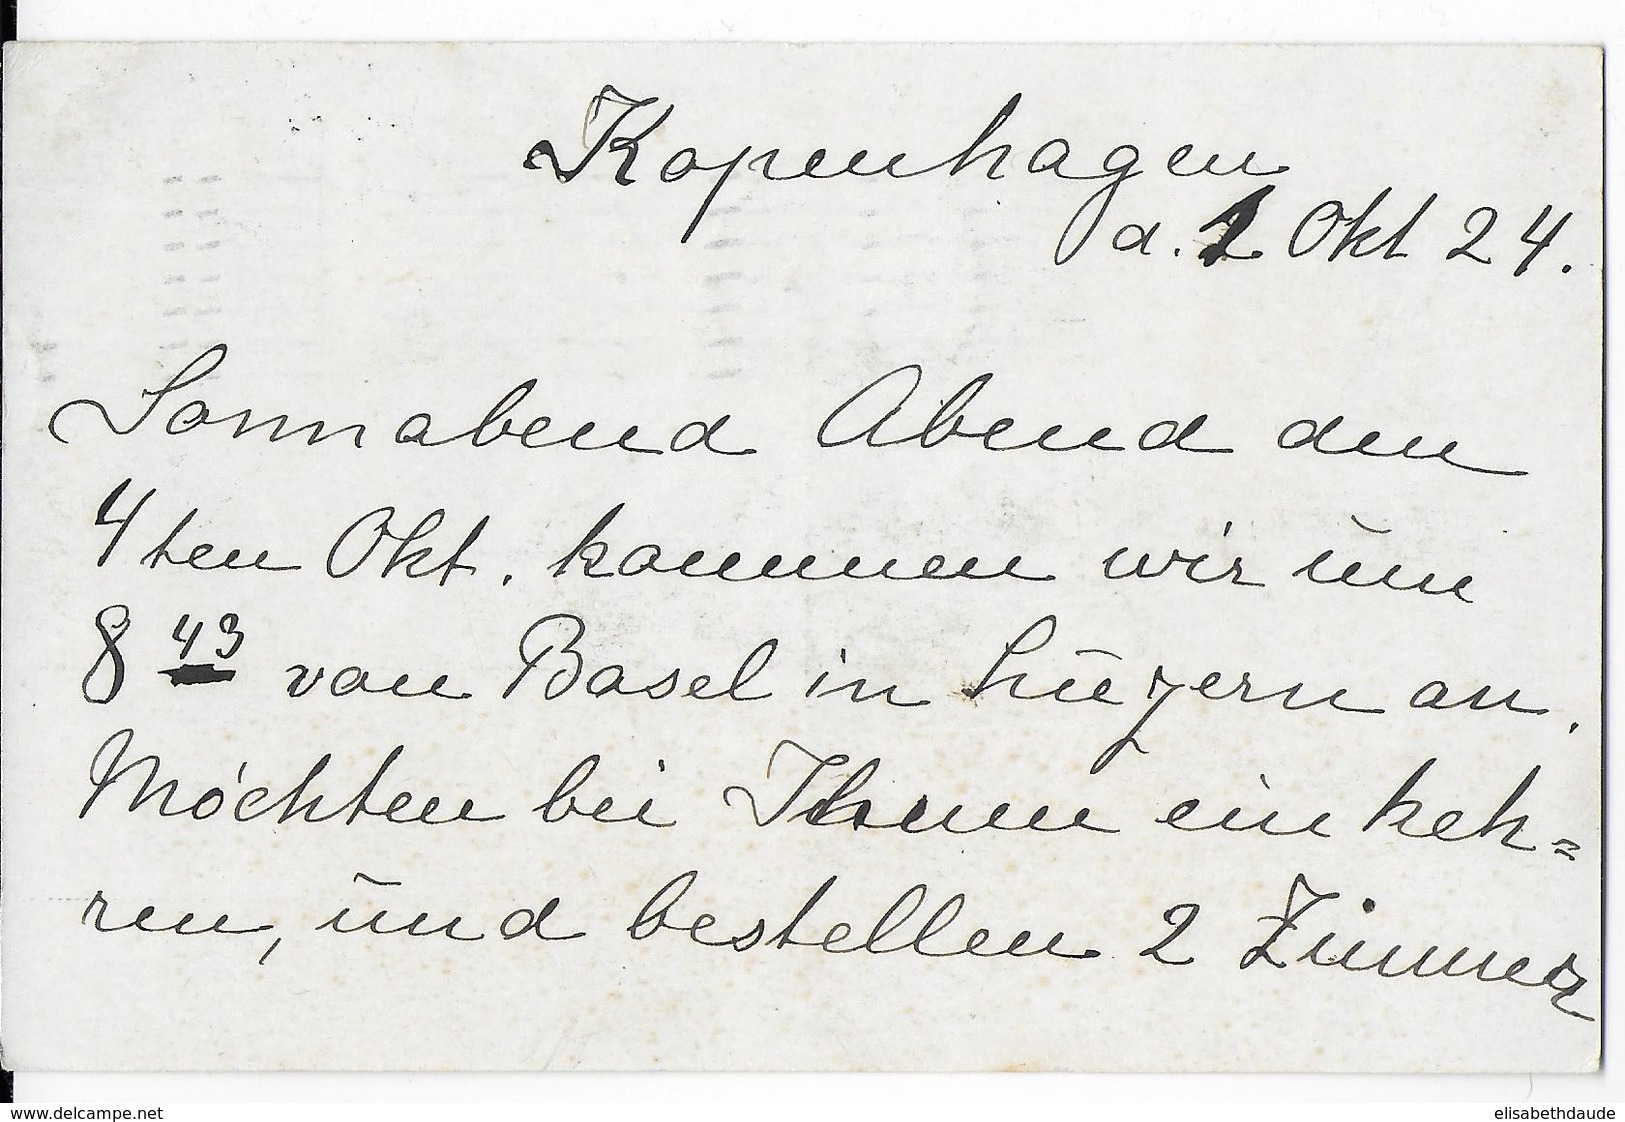 Kopenhagen
d. 1 Okt 24.
Sonnabend Abend den
4ten Okt. kommen wir um
8 43 von Basel in Luzern an.
Möchten bei Ihnen einkeh=
ren, und bestellen 2 Zimmer
www.delcampe.net
elisabethdaude